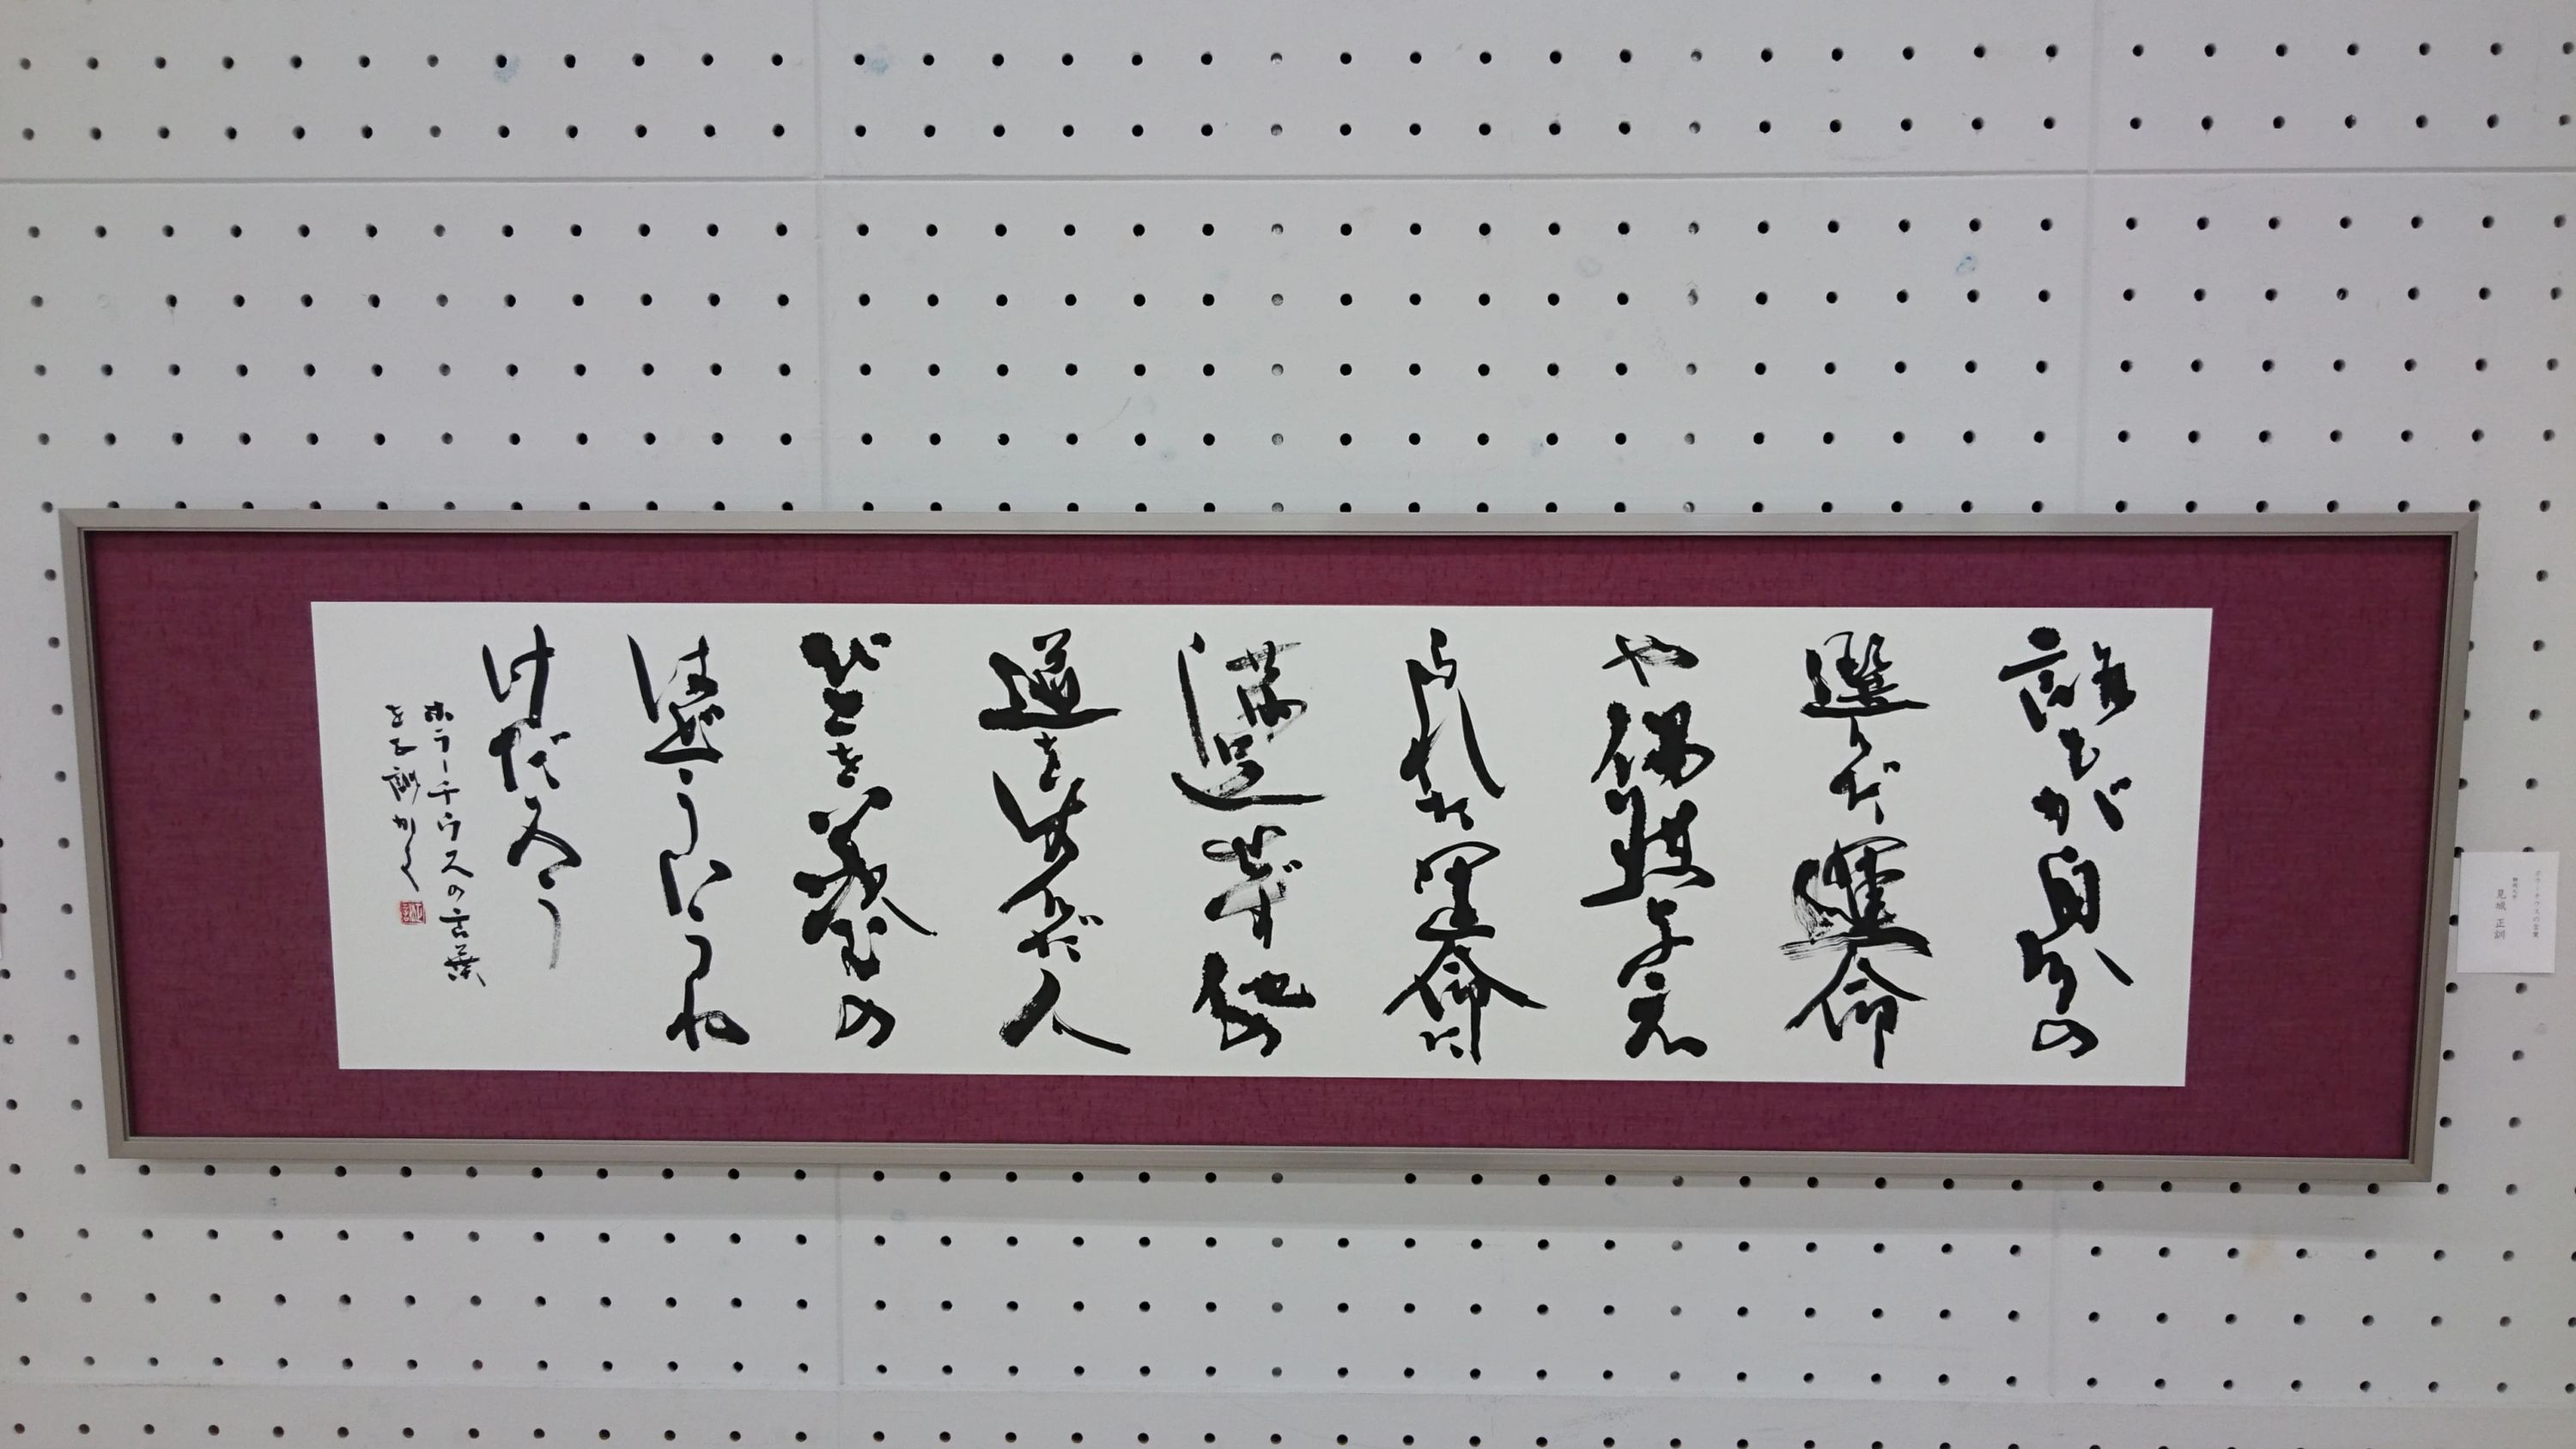 誰もが自分の
選んだ運命
や偶然与え
られた運命に
満足せず他の
道を歩んだ人
びとを羨むの
はどういうわ
けだろう
ホラーチウスの言葉
ホラーチウスの言葉
見城 正訓